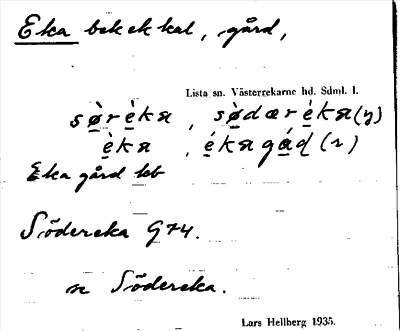 Eka bebekkad, gård,
Lista sn. Västerrekarne hd. Sdml. l.
sø̀rèkʀ, sø̀dærékʀ(y)
èkʀ, ékʀgáɖ(r)
Eka gård
Södereka G74.
se Södereka.
Lars Hellberg 1935.